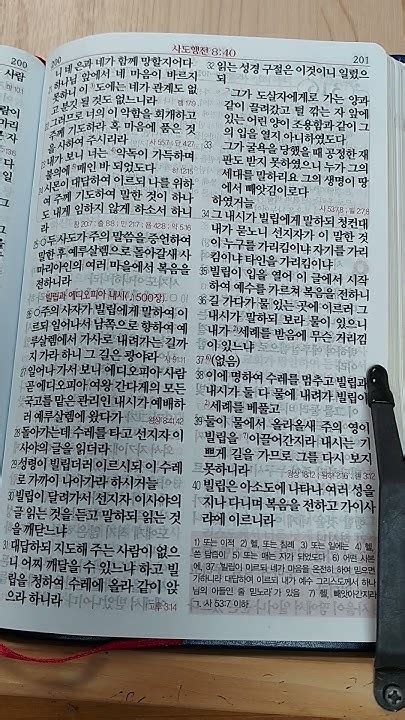 200
사람
사도행전 8:40
200
201
니 네 은과 네가 함께 망할지어다
하나님 앞에서 네 마음이 바르지
못하니 이 도에는 네가 관계도 없
고 분깃 될 것도 없느니라
그러므로 너의 이 악함을 회개하고
주께 기도하라 혹 마음에 품은 것
을 사하여 주시리라
내가 보니 너는 악독이 가득하며
불의에 매인 바 되었도다
시몬이 대답하여 이르되 나를 위하
여 주께 기도하여 말한 것이 하나
도 내게 임하지 않게 하소서 하니
라
25 두 사도가 주의 말씀을 증언하여
말한 후 예루살렘으로 돌아갈새 사
마리아인의 여러 마을에서 복음을
전하니라
빌립과 에디오피아 내시(♪500장)
26 주의 사자가 빌립에게 말하여 이
르되 일어나서 남쪽으로 향하여 예
루살렘에서 가사로 내려가는 길까
지 가라 하니 그 길은 광야라
27 일어나 가서 보니 에디오피아 사람
곧 에디오피아 여왕 간다게의 모든
국고를 맡은 관리인 내시가 예배하
러 예루살렘에 왔다가
28 돌아가는데 수레를 타고 선지자 이
사야의 글을 읽더라
29 성령이 빌립더러 이르시되 이 수레
로 가까이 나아가라 하시거늘
30 빌립이 달려가서 선지자 이사야의
글 읽는 것을 듣고 말하되 읽는 것
을 깨닫느냐
31 대답하되 지도해 주는 사람이 없으
니 어찌 깨달을 수 있느냐 하고 빌
립을 청하여 수레에 올라 같이 앉
으라 하니라
32 읽는 성경 구절은 이것이니 일렀으
되
그가 도살자에게로 가는 양과
같이 끌려갔고 털 깎는 자 앞에
있는 어린 양이 조용함과 같이 그
의 입을 열지 아니하였도다
33 그가 굴욕을 당했을 때 공정한 재
판도 받지 못하였으니 누가 그의
세대를 말하리요 그의 생명이 땅
에서 빼앗김이로다
하였거늘
34 그 내시가 빌립에게 말하되 청컨대
내가 묻노니 선지자가 이 말한 것
이 누구를 가리킴이냐 자기를 가리
킴이냐 타인을 가리킴이냐
35 빌립이 입을 열어 이 글에서 시작
하여 예수를 가르쳐 복음을 전하니
36 길 가다가 물 있는 곳에 이르러 그
내시가 말하되 보라 물이 있으니
내가 세례를 받음에 무슨 거리낌
이 있느냐
37 (없음)
38 이에 명하여 수레를 멈추고 빌립과
내시가 둘 다 물에 내려가 빌립이
세례를 베풀고
39 둘이 물에서 올라올새 주의 영이
빌립을 이끌어간지라 내시는 기
쁘게 길을 가므로 그를 다시 보지
못하니라
40 빌립은 아소도에 나타나 여러 성을
지나 다니며 복음을 전하고 가이사
랴에 이르니라
1) 또는 이적 2) 헬, 또는 침례 3) 또는 일에는 4) 헬,
쓴 담즙이 5) 또는 매는 자가 되었도다 6) 어떤 사본
에, 37 '빌립이 이르되 네가 마음을 온전히 하여 믿으면
가하니라 대답하여 이르되 내가 예수 그리스도께서 하나
님의 아들인 줄 믿노라'가 있음 7) 헬, 빼앗아간지라